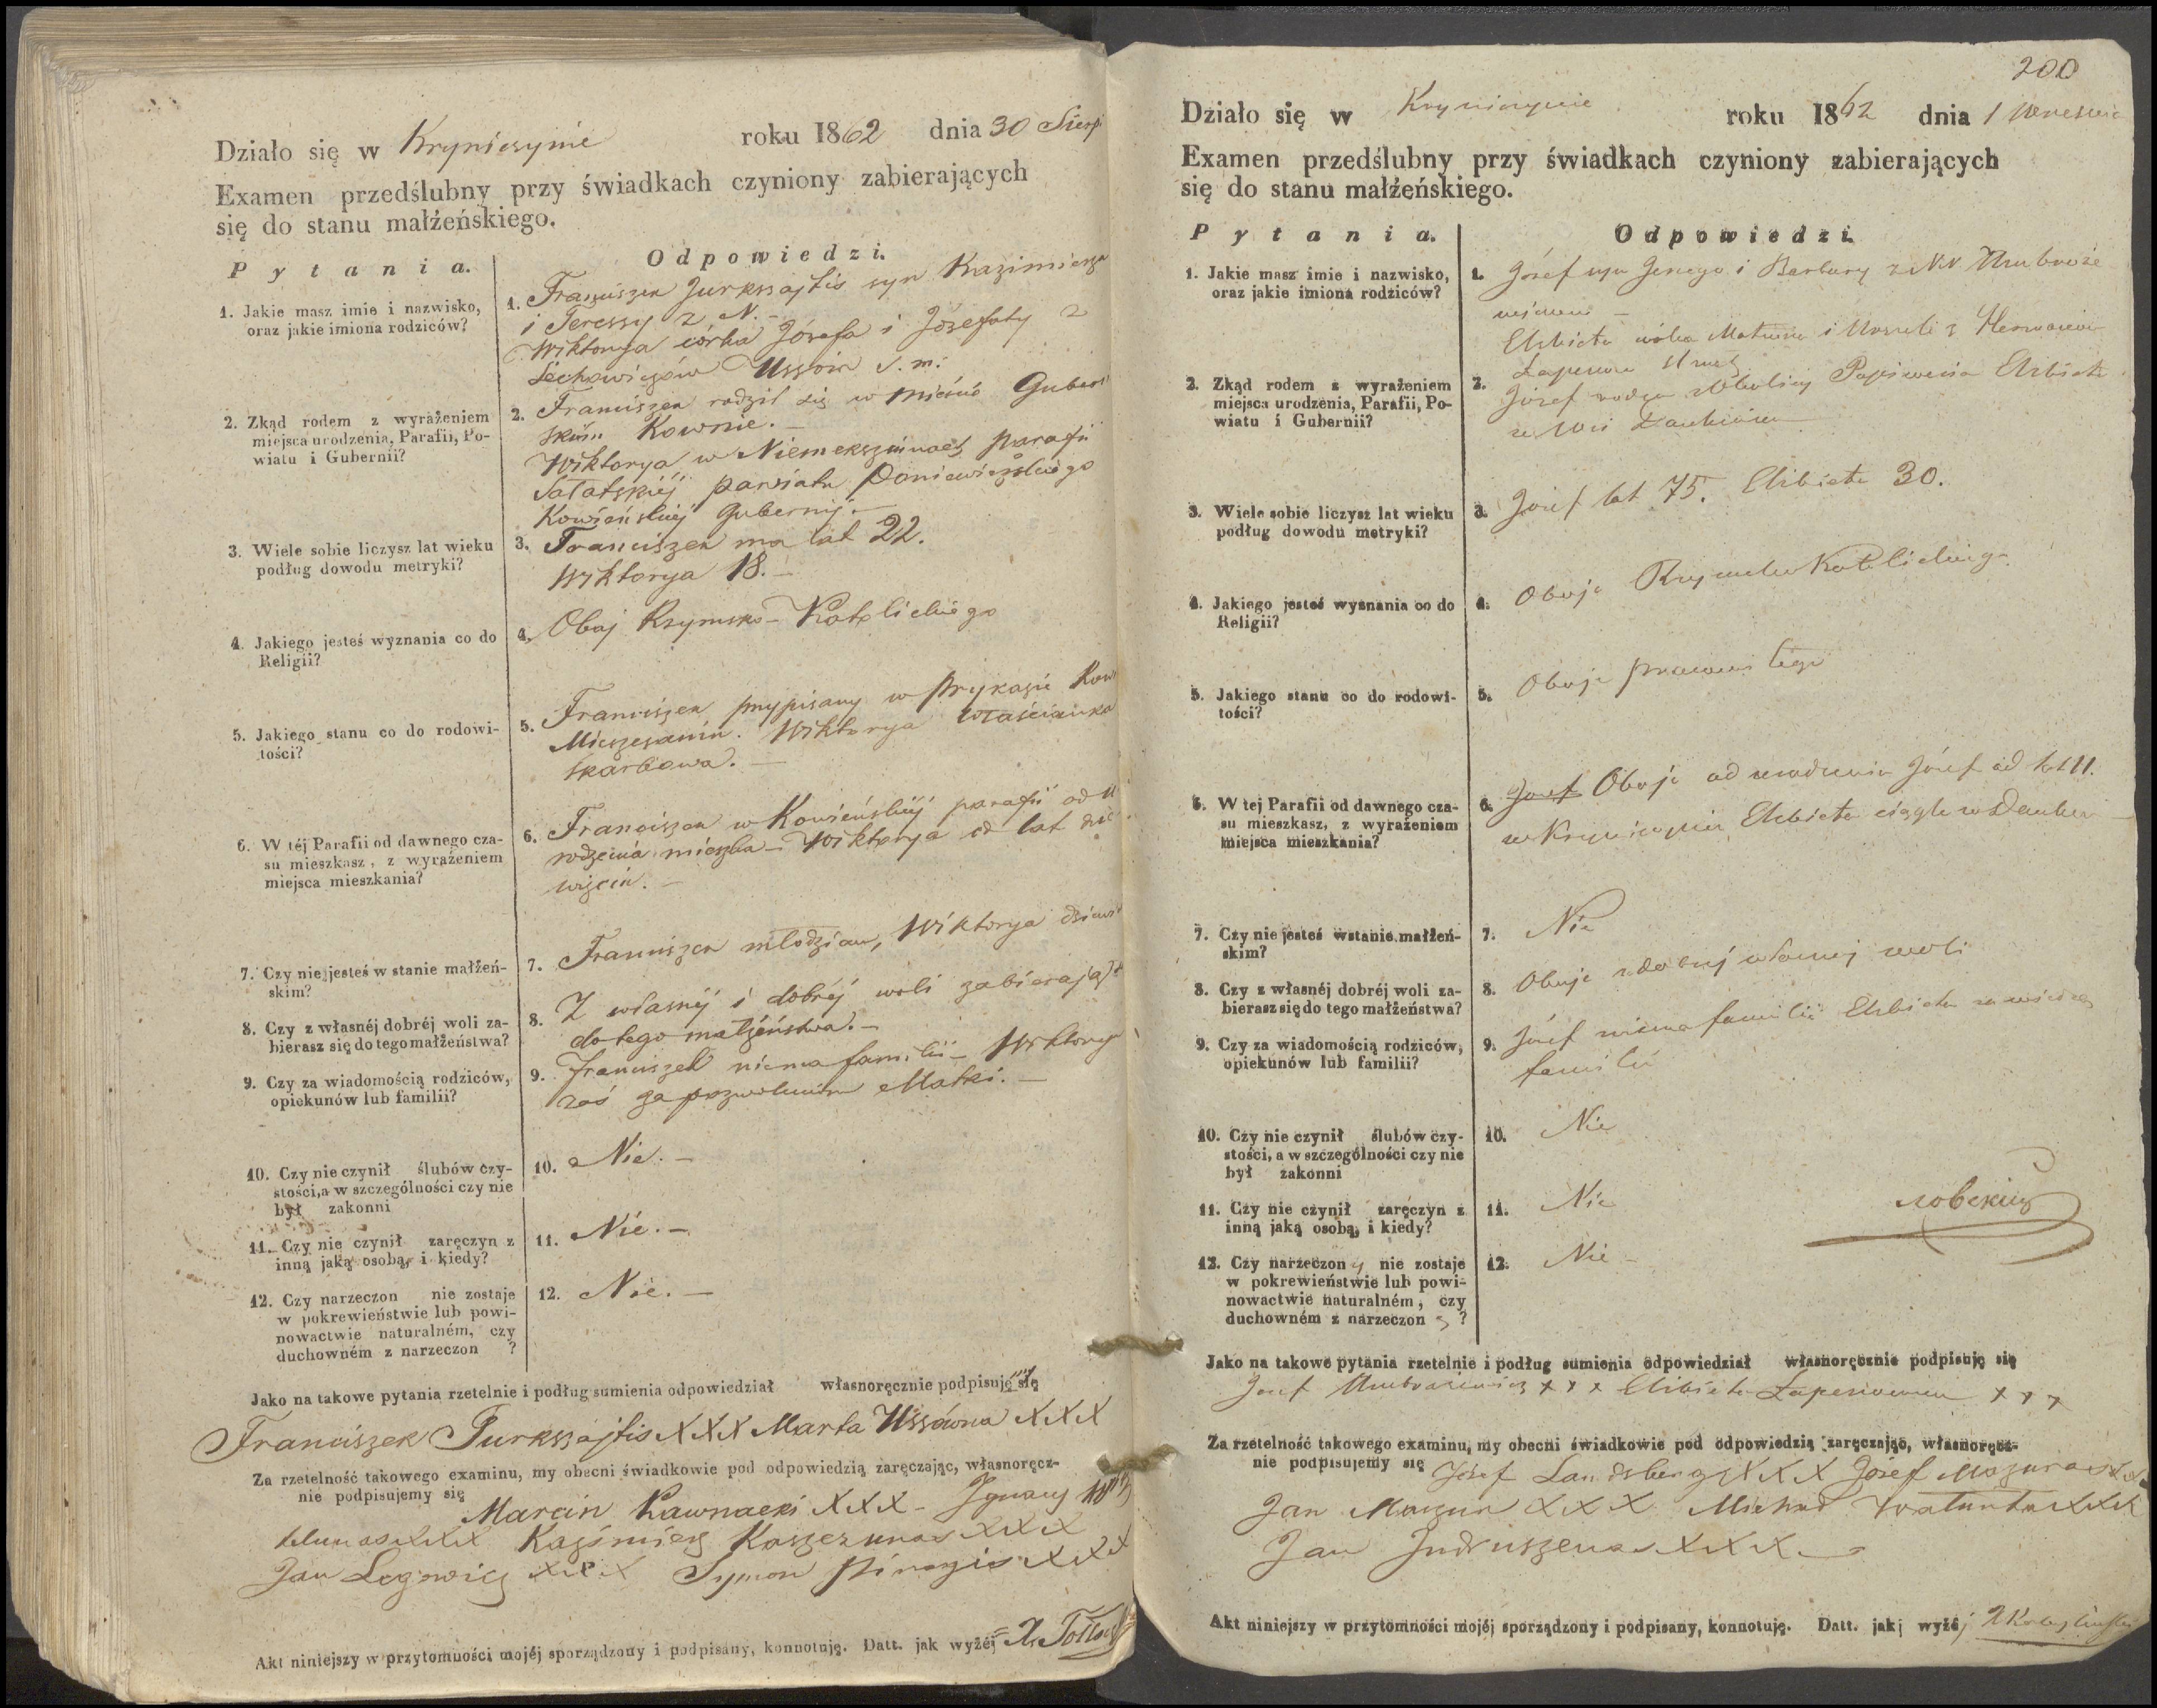 Działo się w Kryniczynie roku 1862 dnia 30 Sierp
Examen przedślubny przy świadkach czyniony zabierających
się do stanu małżeńskiego.
Pytania. Odpowiedzi.
1. Jakie masz imie i nazwisko,
oraz jakie imiona rodziców?
1. Franciszek Jurkszajtis syn Kazimierza
i Teressy z N. –
Wiktorya córka Józefa i Józefaty z
Lechowiczów
2. Zkąd rodem z wyrażeniem
miejsca urodzenia, Parafii, Po-
wiatu i Gubernii?
2. Franciszek rodził się w mieście Guber
skim Kownie. –
Wiktorya w parafii
Sałatskiéj powiatu Poniewiezskiego
Kowieńskiej Gubernij. –
3. Wiele sobie liczysz lat wieku
podług dowodu metryki?
3. Franciszek ma lat 22.
Wiktorya 18. –
4. Jakiego jesteś wyznania co do
Religii?
4. Obaj Rzymsko-Katolickiego
5. Jakiego stanu co do rodowi-
tości?
5. Franciszek przypisany w Prykazie Kow
Mieszczanin. Wiktorya włościanka
skarbowa. –
6. W téj Parafii od dawnego cza-
su mieszkasz, z wyrażeniem
miejsca mieszkania?
6. Franciszek w Kowieńskiéj parafii od u
rodzenia mieszka – Wiktorya od lat dzie
więciu. –
7. Czy nie jesteś w stanie małżeń-
skim?
7. Franciszek młodzian, Wiktorya dziewi
8. Czy z własnéj dobréj woli za-
bierasz się do tego małżeństwa?
8. Z własnéj i dobréj woli zabierają
do tego małżeństwa. –
9. Czy za wiadomością rodziców,
opiekunów lub familii?
9. Franciszek niema familii – Wiktorya
zaś za pozwoleniem Matki. –
10. Czy nie czynił ślubów czy-
stości, a w szczególności czy nie
był zakonni
10. Nie. –
11. Czy nie czynił zaręczyn z
inną jaką osobą, i kiedy?
11. Nie. –
12. Czy narzeczon nie zostaje
w pokrewieństwie lub powi-
nowactwie naturalném, czy
duchowném z narzeczon ?
12. Nie. –
Jako na takowe pytania rzetelnie i podług sumienia odpowiedział własnoręcznie podpisuję się
Franciszek Jurkszajtis XXX Marta Ussówna XXX
Za rzetelność takowego examinu, my obecni świadkowie pod odpowiedzią zaręczając, własnoręcz-
nie podpisujemy się Marcin Kawnacki XXX – Ignacy
XXX Kazimierz XXX
Jan XXX Symon Pinagis XXX
Akt niniejszy w przytomności mojéj sporządzony i podpisany, konnotuję. Datt. jak wyżéj
200
Działo się w Kryniczynie roku 1862 dnia 1 Wrzesnia
Examen przedślubny przy świadkach czyniony zabierających
się do stanu małżeńskiego.
Pytania. Odpowiedzi.
1. Jakie masz imie i nazwisko,
oraz jakie imiona rodziców?
1. Józef syn Jerzego i Barbary z NN
Elzbieta córka Mateusza i Urszuli z
2. Zkąd rodem z wyrażeniem
miejsca urodzenia, Parafii, Po-
wiatu i Gubernii?
2. Józef rodem z Elzbieta
ze Wsi
3. Wiele sobie liczysz lat wieku
podług dowodu metryki?
3. Józef lat 75. Elzbieta 30.
4. Jakiego jesteś wyznania co do
Religii?
4. Oboje Rzymsko Katolickiego
5. Jakiego stanu co do rodowi-
tości?
5. Oboje
6. W tej Parafii od dawnego cza-
su mieszkasz, z wyrażeniem
miejsca mieszkania?
6. Józef Oboje od urodzenia Józef od lat 11.
w Krynicynie Elzbieta ciągle w
7. Czy nie jesteś wstanie małżeń-
skim?
7. Nie
8. Czy z własnéj dobréj woli za-
bierasz się do tego małżeństwa?
8. Oboje z dobrej własnej woli
9. Czy za wiadomością rodziców,
opiekunów lub familii?
9. Józef niema familii Elzbieta za wiedzą
familii
10. Czy nie czynił ślubów czy-
stości, a w szczególności czy nie
był zakonni
10. Nie
11. Czy nie czynił zaręczyn z
inną jaką osobą, i kiedy?
11. Nie
12. Czy narzeczony nie zostaje
w pokrewieństwie lub powi-
nowactwie naturalném, czy
duchowném z narzeczon ?
12. Nie –
Jako na takowe pytania rzetelnie i podług sumienia odpowiedział własnoręcznie podpisuję się
Józef xxx Elzbieta xxx
Za rzetelność takowego examinu, my obecni świadkowie pod odpowiedzią zaręczając, własnoręcz-
nie podpisujemy się Józef Landsberg XXX Józef Mazuras XX
Jan Mazur XXX Michał XXX
Jan Indruszenas XXX –
Akt niniejszy w przytomności mojéj sporządzony i podpisany, konnotuję. Datt. jak wyżéj